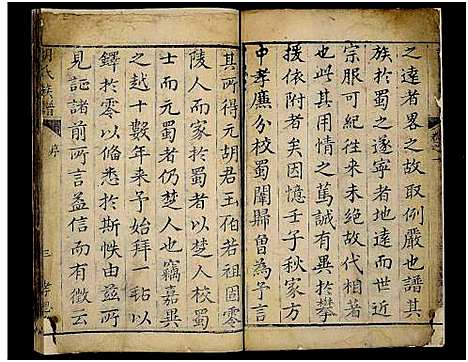 之達者畧之故取例嚴也譜其
族於蜀之遂寧者地遠而世近
宗服可紀徃来若故代相著
也此其用情之篤誠有異於攀
援依附者矣因憶壬子秋家方
中孝廉分校蜀闈歸曽為予言
其所得元胡君玉伯若祖固零
陵人而家於蜀者以楚人校蜀
士而元蜀者仍楚人也竊嘉與
之越十數年来予始拜一玷以
鐸於零以偹悉於斯帙由兹所
見証諸前所言益信而有徴云
胡氏族譜
序
三